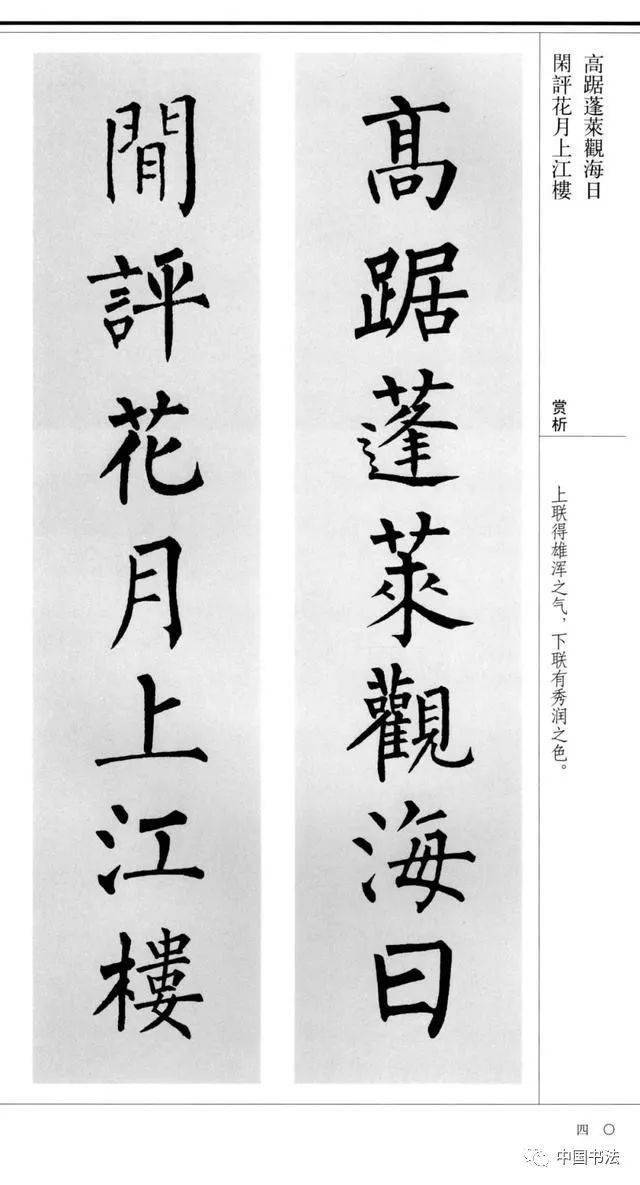 高踞蓬萊觀海日
閑評花月上江樓
赏析
上联得雄浑之气，下联有秀润之色。
髙踞蓬萊觀海日
閒評花月上江樓
四〇
中国书法